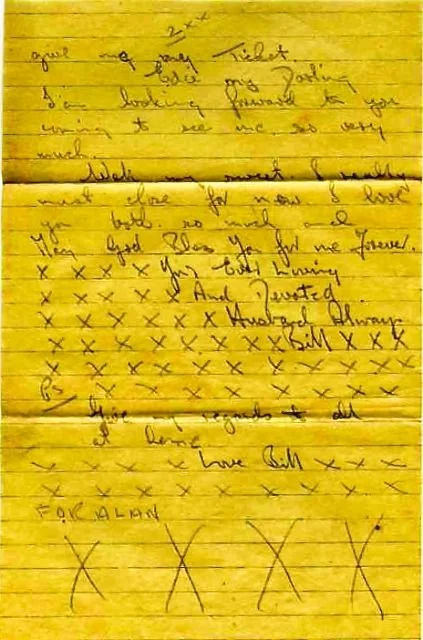 2 x x
give me my Ticket.
Edie my Darling
I am looking forward to you
coming to see me so very
much.
Well my sweet I really
must close for now I love
you both so much and
May God Bless You for me Forever.
X X X X Your Ever Loving
X X X X X And Devoted
X X X X X X Husband Always
X X X X X X X X Bill X X X
X X X X X X X X X X
PS X X X X X X X
Give my regards to all
at home
X X X X Love Bill X X X
X X X X X X X X X
FOR ALAN
X X X X